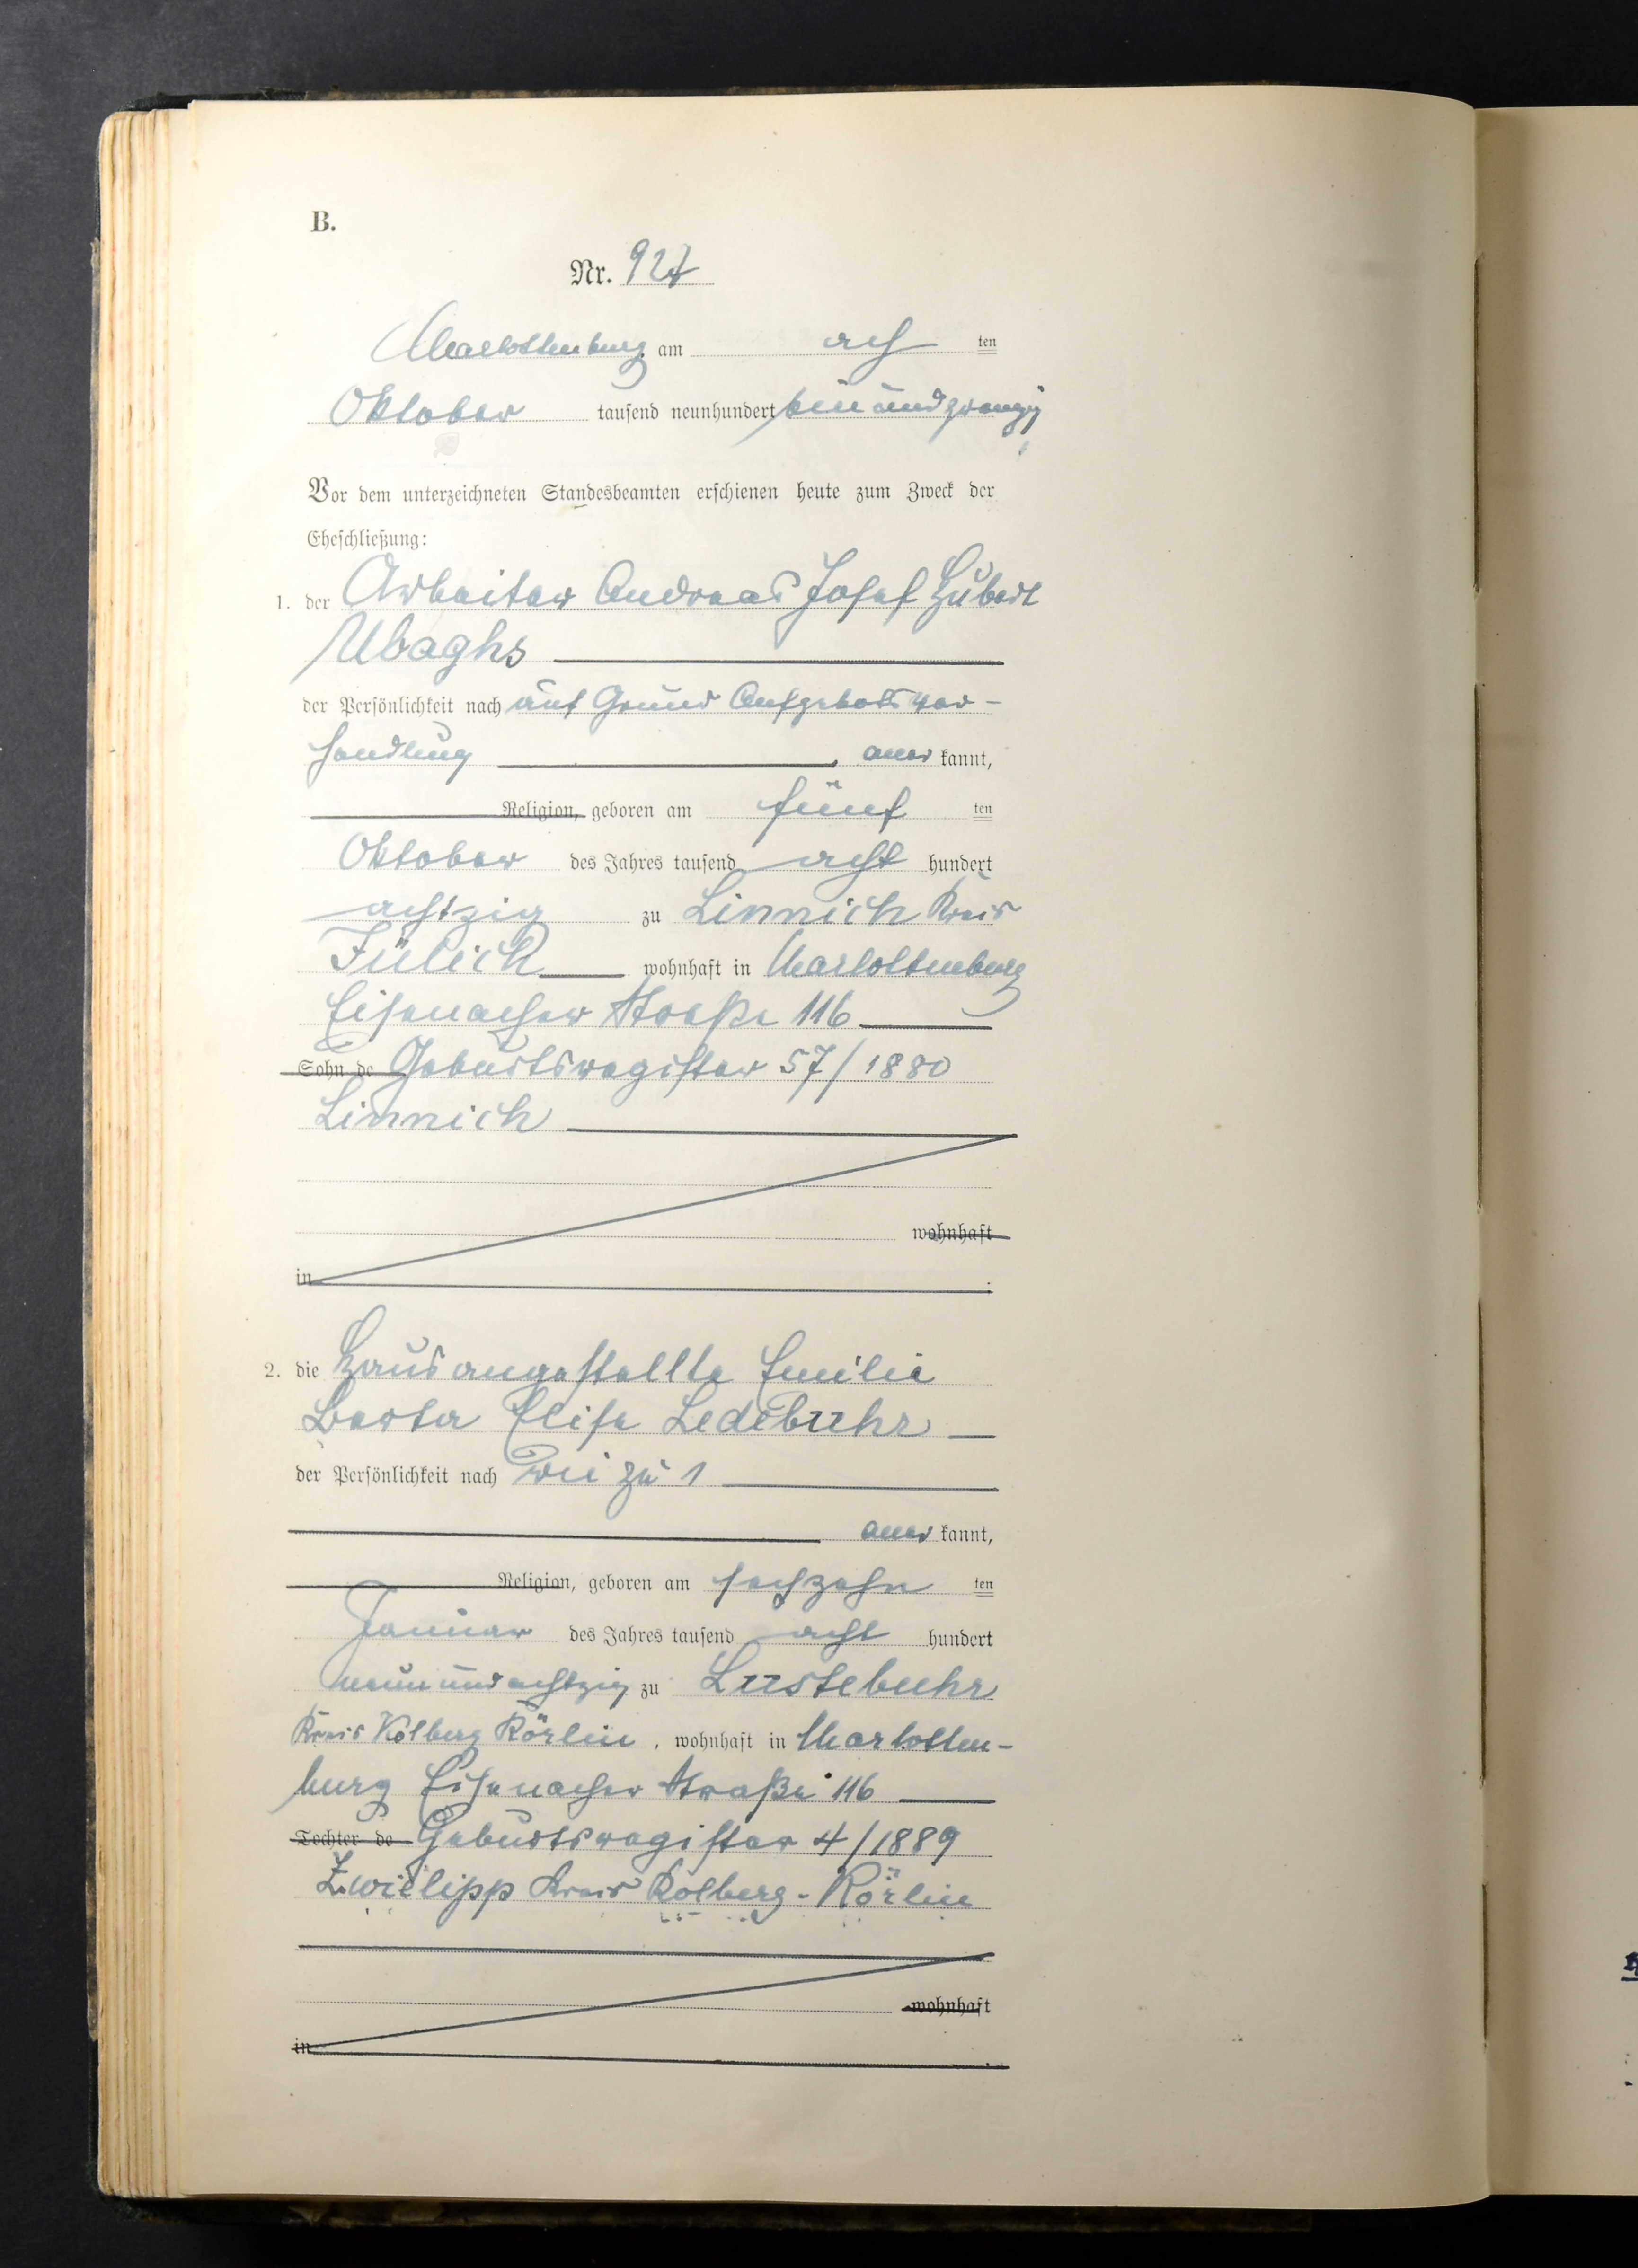 B.
Nr. 927
Charlottenburg am acht ten
Oktober tausend neunhundert einundzwanzig
Vor dem unterzeichneten Standesbeamten erschienen heute zum Zweck der
Eheschließung:
1. der Arbeiter Andreas Josef Hubert
Ubaghs
der Persönlichkeit nach auf Grund Aufgebotsver-
handlung aner kannt,
Religion, geboren am fünf ten
Oktober des Jahres tausend acht hundert
achtzig zu Linnich Kreis
Jülich wohnhaft in Charlottenburg
Eisenacher Straße 116
Sohn de Geburtsregister 57/1880
Linnich
wohnhaft
in
2. die Hausangestellte Emilie
Berta Elise Ledebuhr
der Persönlichkeit nach wie zu 1
aner kannt,
Religion, geboren am sechzehn ten
Januar des Jahres tausend acht hundert
neunundachtzig zu Lustebuhr
Kreis Kolberg Körlin, wohnhaft in Charlotten-
burg Eisenacher Straße 116
Tochter de Geburtsregister 4/1889
Zwielipp Kreis Kolberg-Körlin
wohnhaft
in